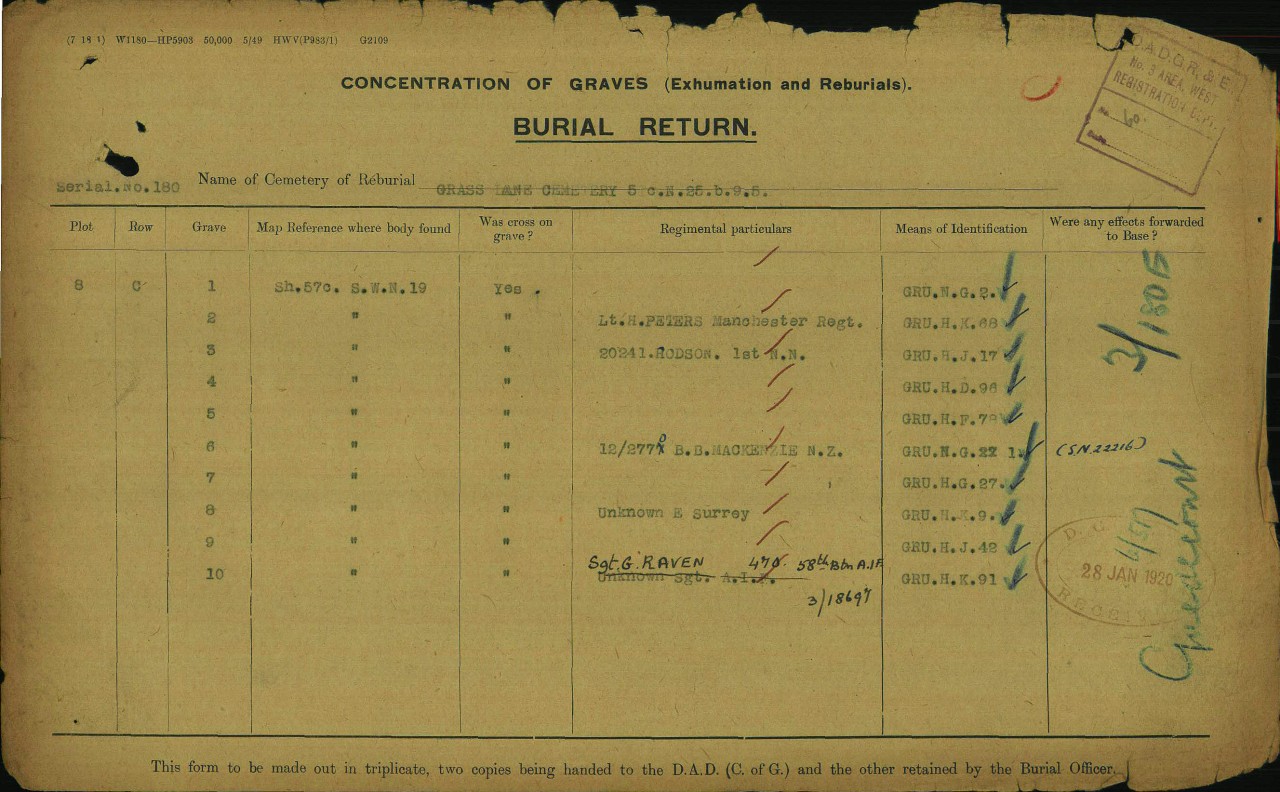 (7 18 1) W1180—HP5903 50,000 5/49 HWV(P983/1) G2109
D.A.D.G.R. & E.
No. 3 AREA, WEST
REGISTRATION DEPT.
CONCENTRATION OF GRAVES (Exhumation and Reburials).
BURIAL RETURN.
Serial.No.180 Name of Cemetery of Reburial GRASS LANE CEMETERY 5 c.N.25.b.9.5.
Plot Row Grave Map Reference where body found Was cross on grave? Regimental particulars Means of Identification Were any effects forwarded to Base?
8 C 1 Sh.57c. S.W.N.19 Yes . GRU.N.G.2.
2 " " Lt.H.PETERS Manchester Regt. GRU.H.K.68
3 " " 20241.HODSON. 1st N.N. GRU.H.J.17
4 " " GRU.H.D.96
5 " " GRU.H.F.78
6 " " 12/2770 B.B.MACKENZIE N.Z. GRU.N.G.22 (S.N.22216)
7 " " GRU.H.G.27.
8 " " Unknown E Surrey GRU.H.K.9.
9 " " GRU.H.J.42
Sgt. G. RAVEN 470. 58th Btn A.I.F
10 " " Unknown Sgt. A.I.F. GRU.H.K.91
3/18697
3/180E
4/57
Gueudecourt
28 JAN 1920
RECEIVED
This form to be made out in triplicate, two copies being handed to the D.A.D. (C. of G.) and the other retained by the Burial Officer.